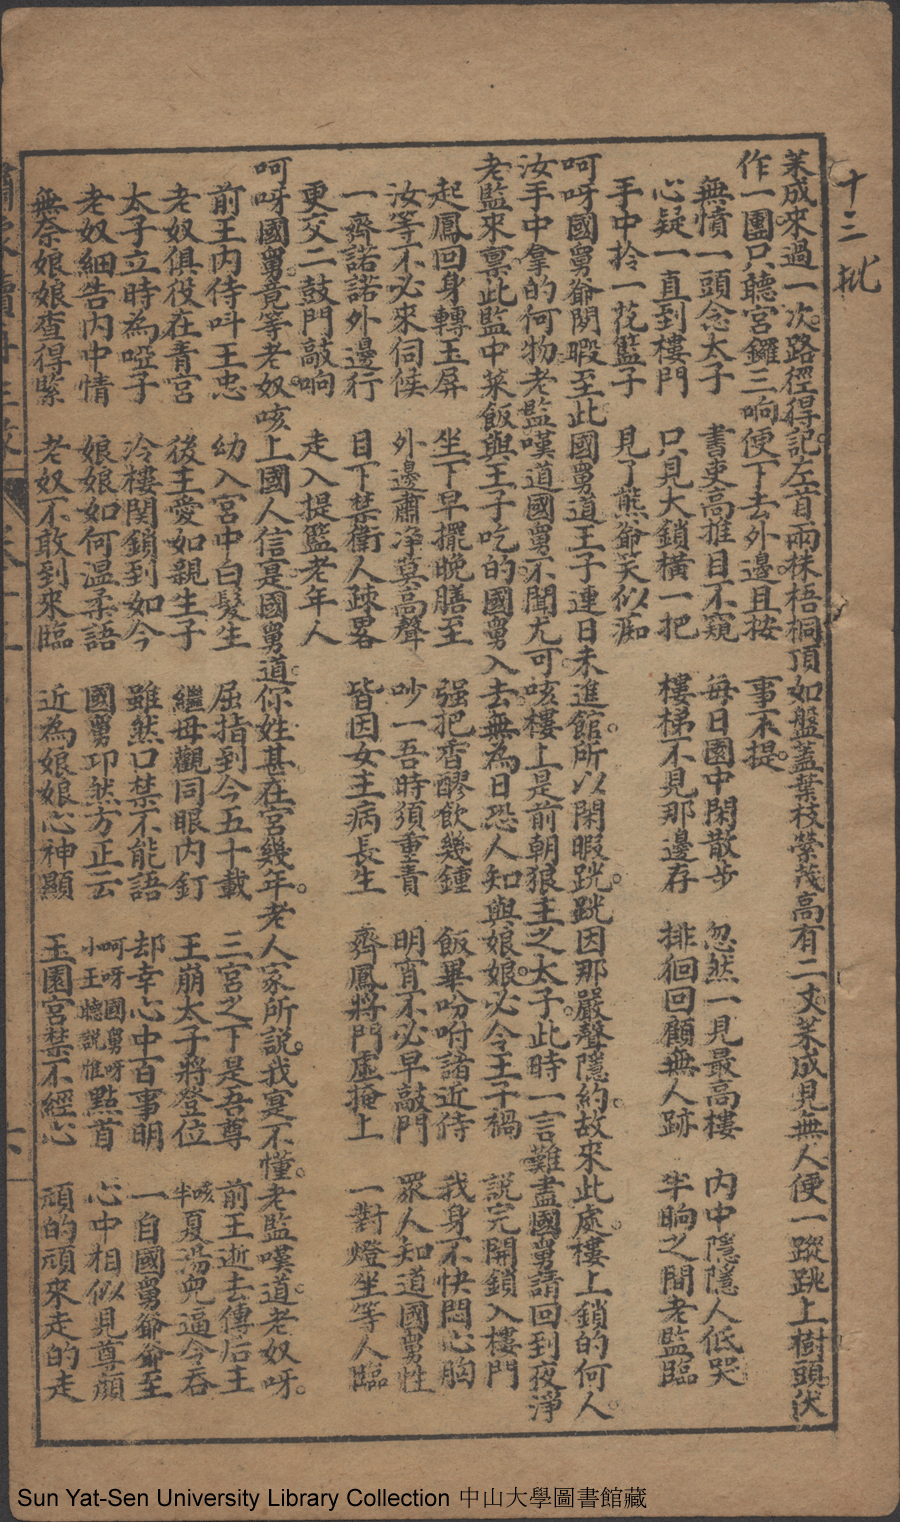 十三批
茱成來過一次。路徑得記。左首兩株梧桐。頂如盤蓋。葉枝縈茂。高有二丈。茱成見無人。便一蹤跳上樹頭。伏
作一團。只聽宮鑼三响。便下去。外邊且按 事不提。
無憤一頭念太子 書吏高推目不窺 每日園中閑散步 忽然一見最高樓 內中隱隱人低哭
心疑一直到樓門 只見大鎖橫一把 樓梯不見那邊存 排徊回顧無人跡 半晌之間老監臨
手中拎一花籃子 見了熊爺笑似痴
呵呀國舅爺閑暇至此。國舅道王子連日未進館。所以閑暇跣。跣因那嚴聲隱約。故來此處。樓上鎖的何人。
汝手中拿的何物。老監嘆道國舅不聞尤可。咳樓上是前朝狠主之太子。此時一言難盡。國舅請回到夜淨
老監來禀。此監中菜飯與王子吃的。國舅入去無為。日恐人知與娘娘。必令王子禍 說完開鎖入樓門
起鳳回身轉玉屏 坐下早擺晚膳至 强把香醪飲幾鍾 飯畢吩咐諸近侍 我身不快悶心胸
汝等不必來伺候 外邊肅净莫高聲 吵一吾時須重責 明宵不必早敲門 眾人知道國舅性
一齊諾諾外邊行 目下禁衛人疎畧 皆因女主病長生 齊鳳將門虛掩上 一對燈坐等人臨
更交二鼓門敲响 走入提籃老年人
呵呀國舅。竟等老奴。咳上國人信是。國舅道。你姓甚在宮幾年。老人家所說。我寔不懂。老監嘆道。老奴呀。
前王內侍呌王忠 幼入宮中白髮生 屈指到今五十載 三宮之下是吾尊 前王逝去傳后王
老奴俱役在青宮 後王愛如親生子 繼母觀同眼內釘 王崩太子將登位 咳半夏湯兜逼令吞
太子立時為啞子 冷樓関鎖到如今 雖然口禁不能語 却幸心中百事明 一自國舅爺爺至
老奴細告內中情 娘娘如何温柔語 國舅卬然方正云 呵呀國舅呀小王聽說惟點首 心中相似見尊顏
無奈娘娘查得緊 老奴不敢到來臨 近為娘娘心神顯 玉園宮禁不經心 頑的頑來走的走
Sun Yat-Sen University Library Collection 中山大學圖書館藏